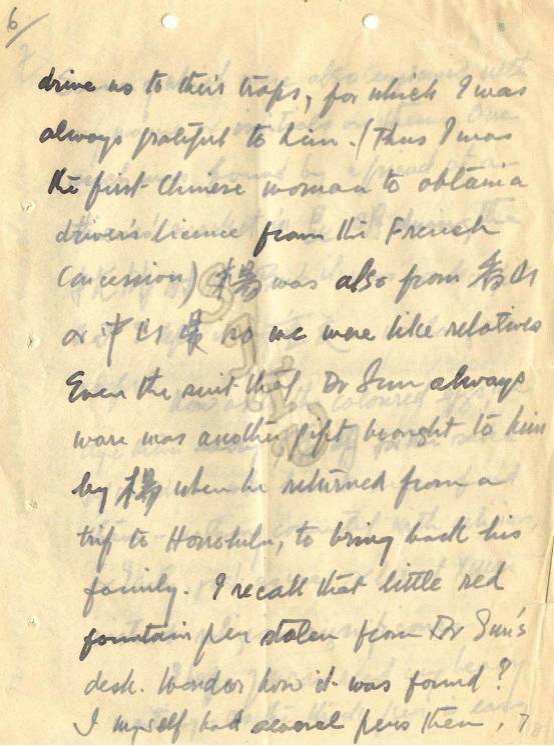 6
drive us to their traps, for which I was
always grateful to him. (Thus I was
the first Chinese woman to obtain a
driver's licence from the French
Concession) 楊 was also from 香山
or 中山 縣 so we were like relatives
Even the suit that Dr Sun always
wore was another gift brought to him
by 楊 when he returned from a
trip to Honolulu, to bring back his
family. I recall that little red
fountain pen stolen from Dr Sun's
desk. Wonder how it was found?
I myself had several pens then, 7